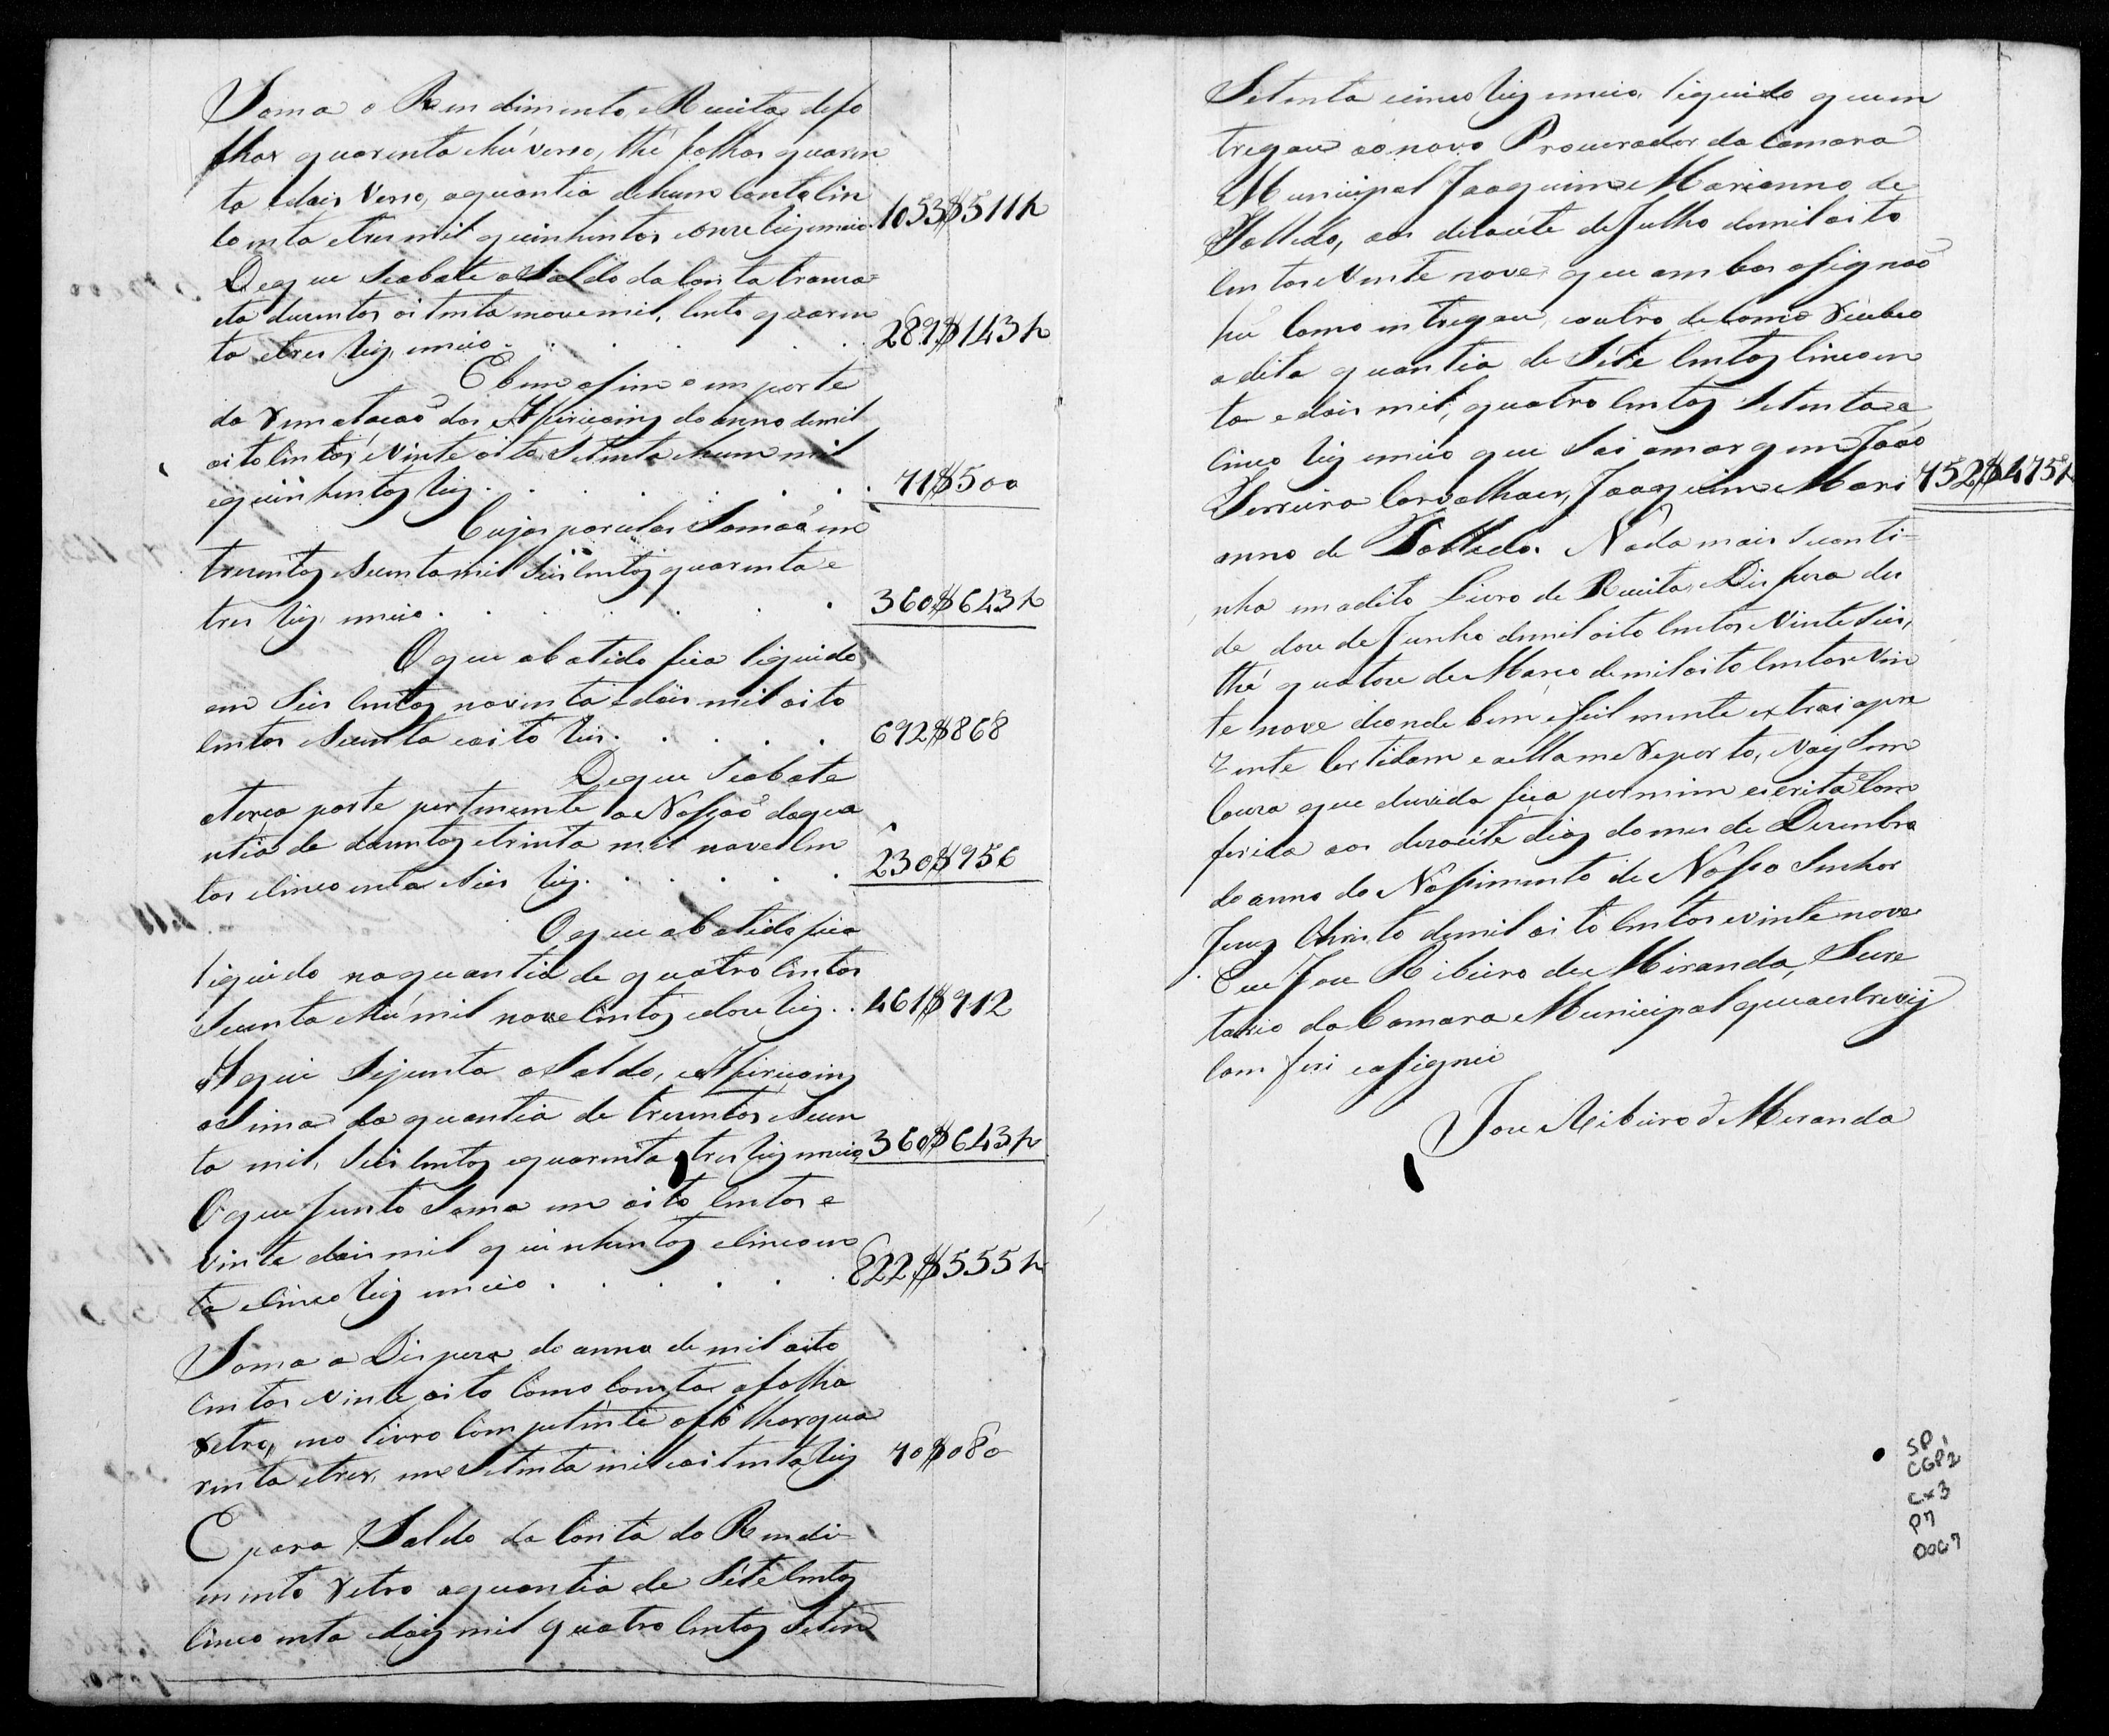 Soma o Rendimento, e Receita de fo
lhas quarenta e hú verso, thé folhas quaren
ta e dois verso, a quantia de hum Conto Cin
coenta e tres mil quinhentos e onze reis e meio. 1053$511½
De que Se abate o Saldo da Conta transa
cta duzentos oitenta nove mil, Cento quaren
ta e tres reis, e meio . . . . 289$143½
E bem asim o emporte
da Rematacaõ das Afiricoins do anno de mil
oito Centos e Vinte oito, Setenta e hum mil
e quinhentos reis . . . . . . . 71$500
Cujas parcelas Somaõ em
trezentos e Secenta mil Seis Centos quarenta e
tres reis, e meio . . . . . . 360$643½
O que abatido fica liquido
em Seis Centos noventa e dois mil oito
Centos e Secenta e oito reis. . . . . 692$868
De que Se abate
a terca parte pertencente a Nasçaõ da qua
ntia de duzentos e trinta mil nove Cen
tos e Cincoenta e Seis reis. . . . . . 230$956
O que abatido fica
liquido na quantia de quatro Centos
Secenta e hú mil nove Centos e doze reis. . 461$912
A que Se junta o Saldo, e Afiricoins
a Sima da quantia de trezentos e Secen
ta mil, Seis Centos e quarenta e tres reis e meio, 360$643½
O que junto Soma em oito Centos e
Vinte dois mil quinhentos e Cincoen
ta e Cinco reis e meio . . . . . 822$555½
Soma a Dispeza do anno de mil oito
Centos e Vinte oito Como Consta a folha
retro, no livro Competente a folhas qua
renta e tres, em Setenta mil e oitenta reis 70$080
E para Saldo da Conta do Rendi-
mento retro a quantia de Séte Centos
Cincoenta e dois mil quatro Centos Seten
Setenta e cinco reis e meio, liquido que en
tregou ao novo Procurador da Camara
Municipal Joaquim Marianno de
Tolledo, aos dezaséte de Julho de mil oito
Centos e Vinte nove que ambos asignaõ
hú Como entregou, e outro de Como recebeo
a dita quantia de Séte Centos Cincoen
ta e dois mil, quatro Centos Setenta e
Cinco reis e meio que Sai a margem Joaõ
Ferreira Carvalhaes, Joaquim Mari 752$475½
anno de Tolledo. Nada mais Se conti-
nha em o dito Livro de Receita, e Dispeza des
de doze de Junho de mil oito Centos e Vinte Seis,
thé quatorze de Marco de mil oito Centos e Vin
te nove de onde bem e fiel mente extrai a pre
zente Certidam e a ella me reporto, e Vay Sem
Couza que duvida fáca por mim escrita e Com
ferida aos dezaséte dias do mes de Dezembro
do anno do Nascimento de Nosso Senhor
Jezus Christo de mil oito Centos e vinte nove
Eu Joze Ribeiro de Miranda, Secre
tario da Camara Municipal que a escrevij
Comferi e asignei
Joze Ribeiro de Miranda
SP
CGP2
cx3
P7
0007